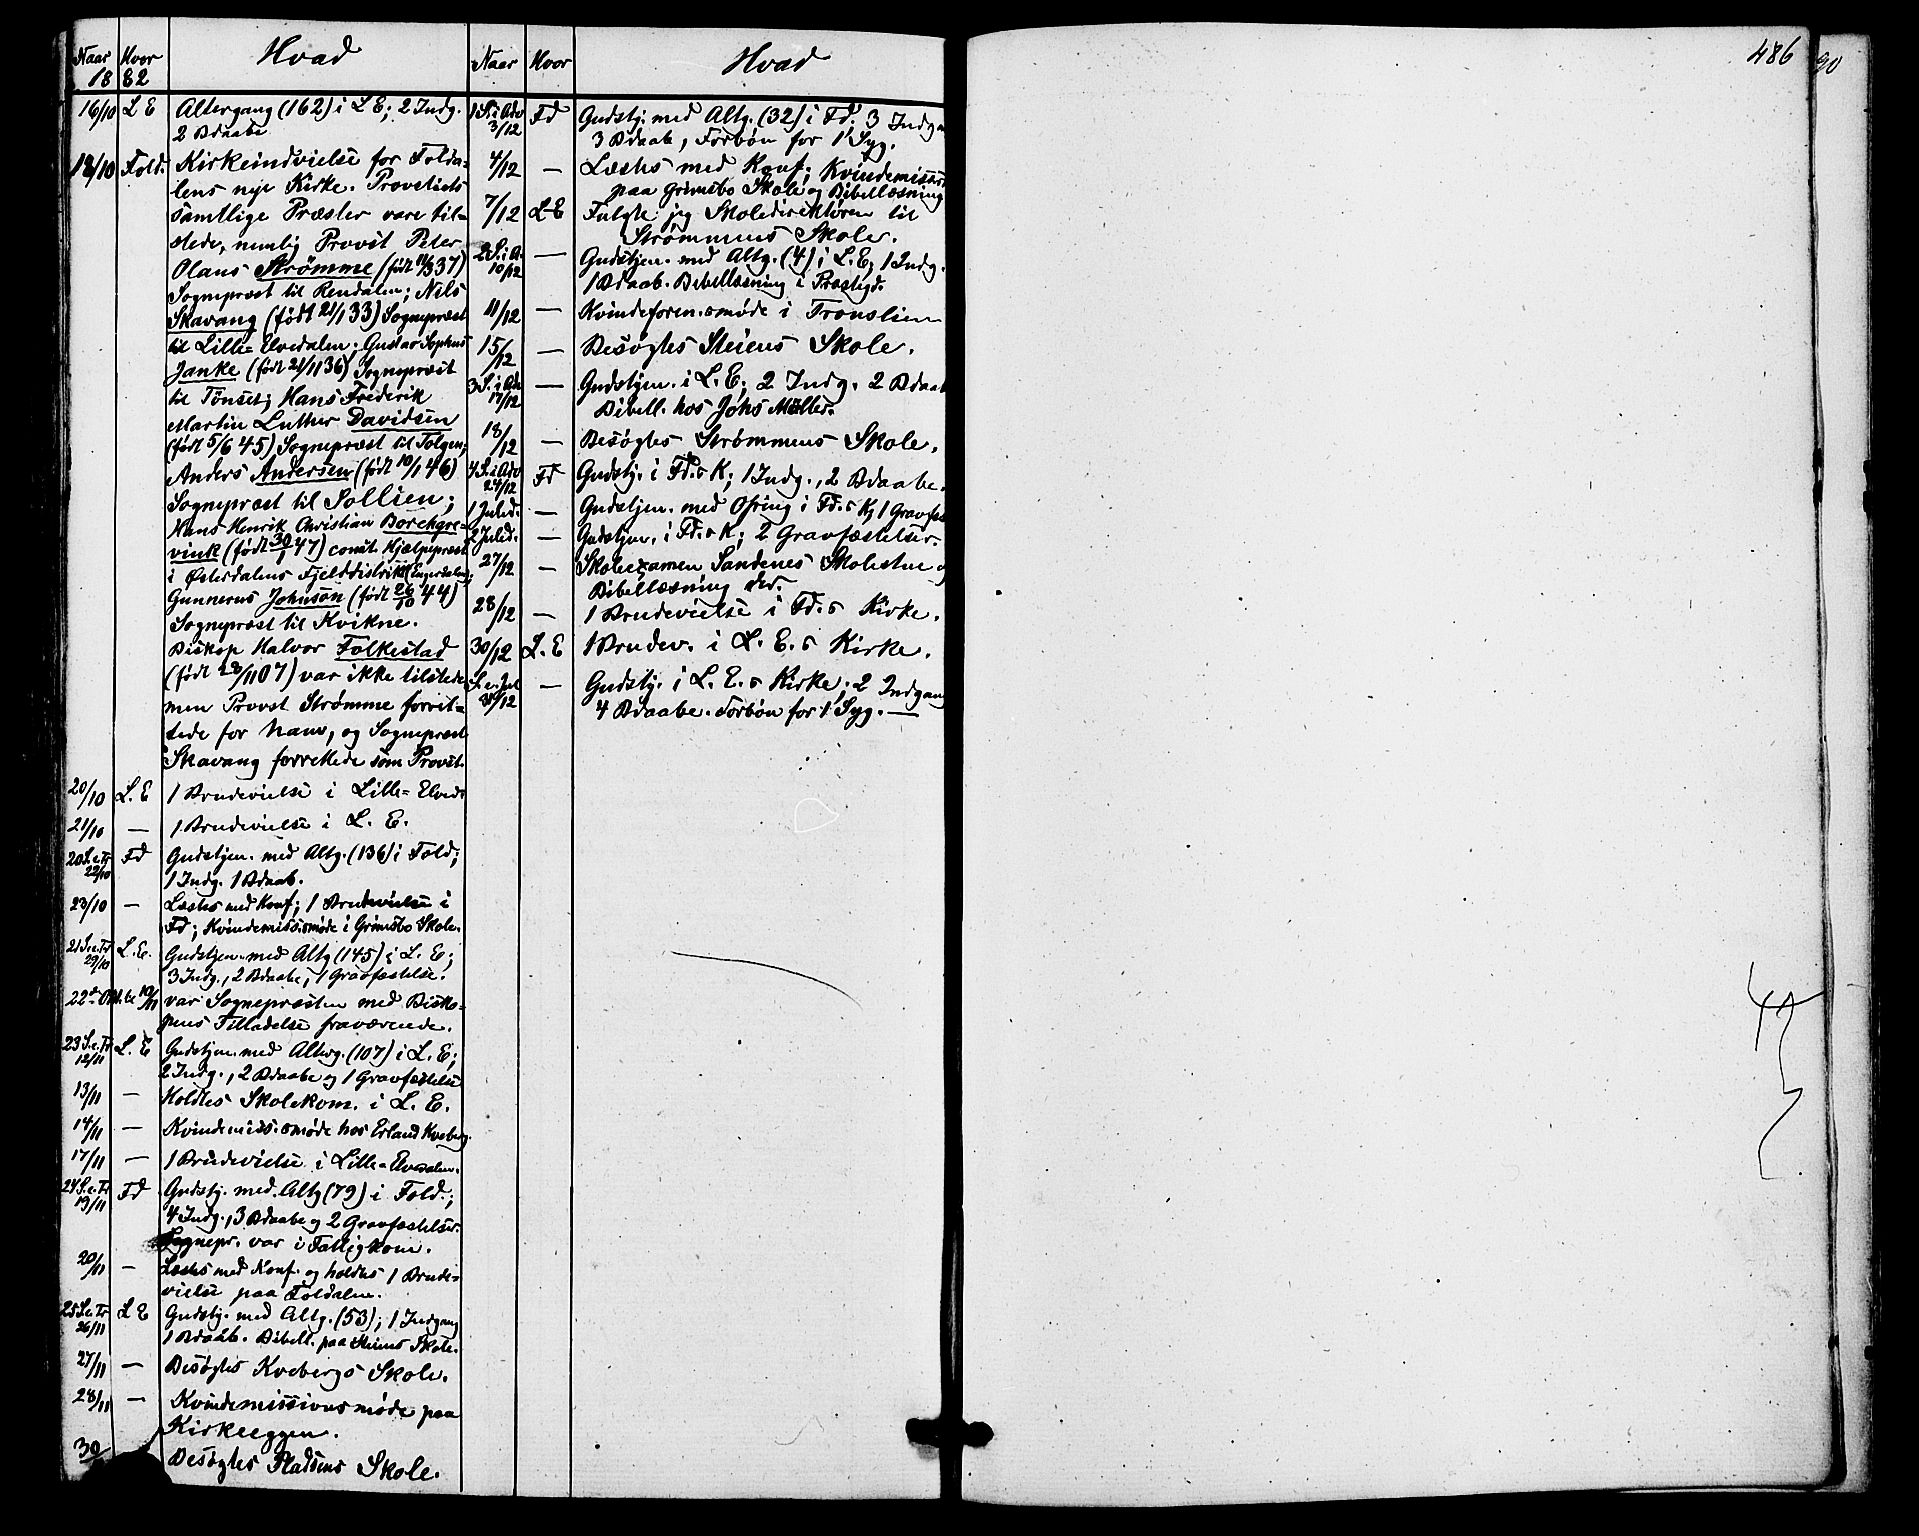 Naar Hvor Hvad
18 82
16/10 L E Altergang (162) i L E; 2 Indg.
2 Bdaabe
18/10 Fold. Kirkeindvielse for Folda-
lens nye Kirke. Provstiets
samtlige Præster vare til-
stede, nemlig Provst Peter
Olaus Strømme (født 11/3 37)
Sognepræst til Rendalen; Nils
Skavang (født 21/1 33) Sognepræst
til Lille-Elvedalen; Gustav Sophus
Janke (født 21/11 36) Sognepræst
til Tønset; Hans Frederik
Martin Luther Davidsen
(født 5/6 45) Sognepræst til Tolgen;
Anders Andersen (født 10/1 46)
Sognepræst til Sollien;
Hans Henrik Christian Borchgre-
vink (født 30/1 47) const. Hjælpepræst
i Østerdalens Fjelddistrikt (Engerdalen;
Gunnerus Johnson (født 26/10 44)
Sognepræst til Kvikne.
Biskop Halvor Folkestad
(født 28/11 07) var ikke tilstede
men Provst Strømme forret-
tede for ham, og Sognepræst
Skavang forrettede som Provst.
20/10 L. E 1 Brudevielse i Lille-Elved.
21/10 — 1 Brudevielse i L. E.
20 S. e. Tr 22/10 Fd Gudstjen. med Altg. (136) i Fold;
1 Indg. 1 Bdaab.
23/10 — Læstes med Konf; 1 Brudevielse i
Fd; Kvindemiss.møde i Grimsbo Skole.
21 S. e. Tr 29/10 L. E. Gudstjen. med Altg (145) i L. E;
3 Indg., 2 Bdaabe, 1 Gravfæstelse.
var Sognepræsten med Bisko-
pens Tilladelse fraværende.
23 S. e. Tr 12/11 L. E Gudstjen. med Alterg. (107) i L. E;
2 Indg., 2 Bdaabe og 1 Gravfæstelse
13/11 — Holdtes Skolekom. i L. E.
14/11 — Kvindemiss.møde hos Erland Kveberg.
17/11 — 1 Brudevielse i Lille-Elvedalen.
24 S. e. Tr 19/11 Fd Gudstj. med Altg (79) i Fold.;
4 Indg., 3 Bdaabe og 2 Gravfæstelser.
Sognepr. var i Fattigkom.
20/11 — Læstes med Konf. og holdtes 1 Brude-
vielse paa Foldalen.
25 S. e. Tr 26/11 L E Gudstj. med Altg. (53); 1 Indgang
1 Bdaab. Bibell. paa Steiens Skole.
27/11 — Besøgtes Kvebergs Skole.
28/11 — Kvindemissionsmøde paa
Kirkeeggen.
30 Besøgtes Pladsens Skole.
Naar Hvor Hvad
1 S. i Adv 3/12 Fd Gudstj. med Altg. (32) i Fd. 3 Indgan
3 Bdaab, Forbøn for 1 Syg.
4/12 — Læstes med Konf; Kvindemiss
paa Grimsbo Skole og Bibellæsning
7/12 L-E Fulgte jeg Skoledirektøren til
Strømmens Skole.
2 S. i A. 10/12 — Gudstjen. med Altg. (4) i L. E; 1 Indg.
1 Bdaab. Bibellæsning i Præstegd.
11/12 — Kvindeforen.smøde i Tronslien
15/12 — Besøgtes Steiens Skole.
3 S. i Adv 17/12 — Gudstjen. i L. E; 2 Indg. 2 Bdaab
Bibell. hos Johs Møller.
18/12 — Besøgtes Strømmens Skole.
4 S. i Adv 24/12 Fd Gudstj. i Fd.s K; 1 Indg., 2 Bdaabe.
1 Juled. — Gudstjen. med Ofring i Fd.s K; 1 Gravfæs
2 Juled. — Gudstjen. i Fd.s K; 2 Gravfæstelser.
27/12 — Skoleexamen Sandenes Skolestue o
Bibellæsning der.
28/12 — 1 Brudevielse i Fd.s Kirke.
30/12 L. E 1 Brudev. i L. E.s Kirke.
S. e. Jul 31/12 — Gudstj. i L. E.s Kirke; 2 Indgang
4 Bdaabe. Forbøn for 1 Syg. —
486